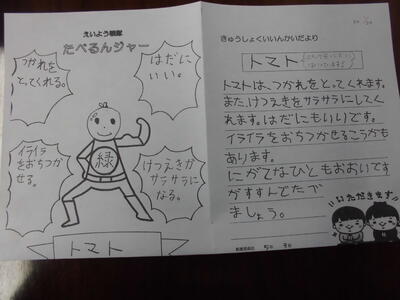 えいよう戦隊
たべるんジャー
つかれを
とってくれる。
はだに
いい。
イライラ
をおちつか
せる。
緑
けつえきが
サラサラに
なる。
トマト
きゅうしょくいいんかいだより
トマト
トマトは、つかれをとってくれます。
また、けつえきをサラサラにしてく
れます。はだにもいいです。
イライラをおちつかせるこうかも
あります。
にがてなひともおおいです
がすすんでたべ
ましょう。
いただきます